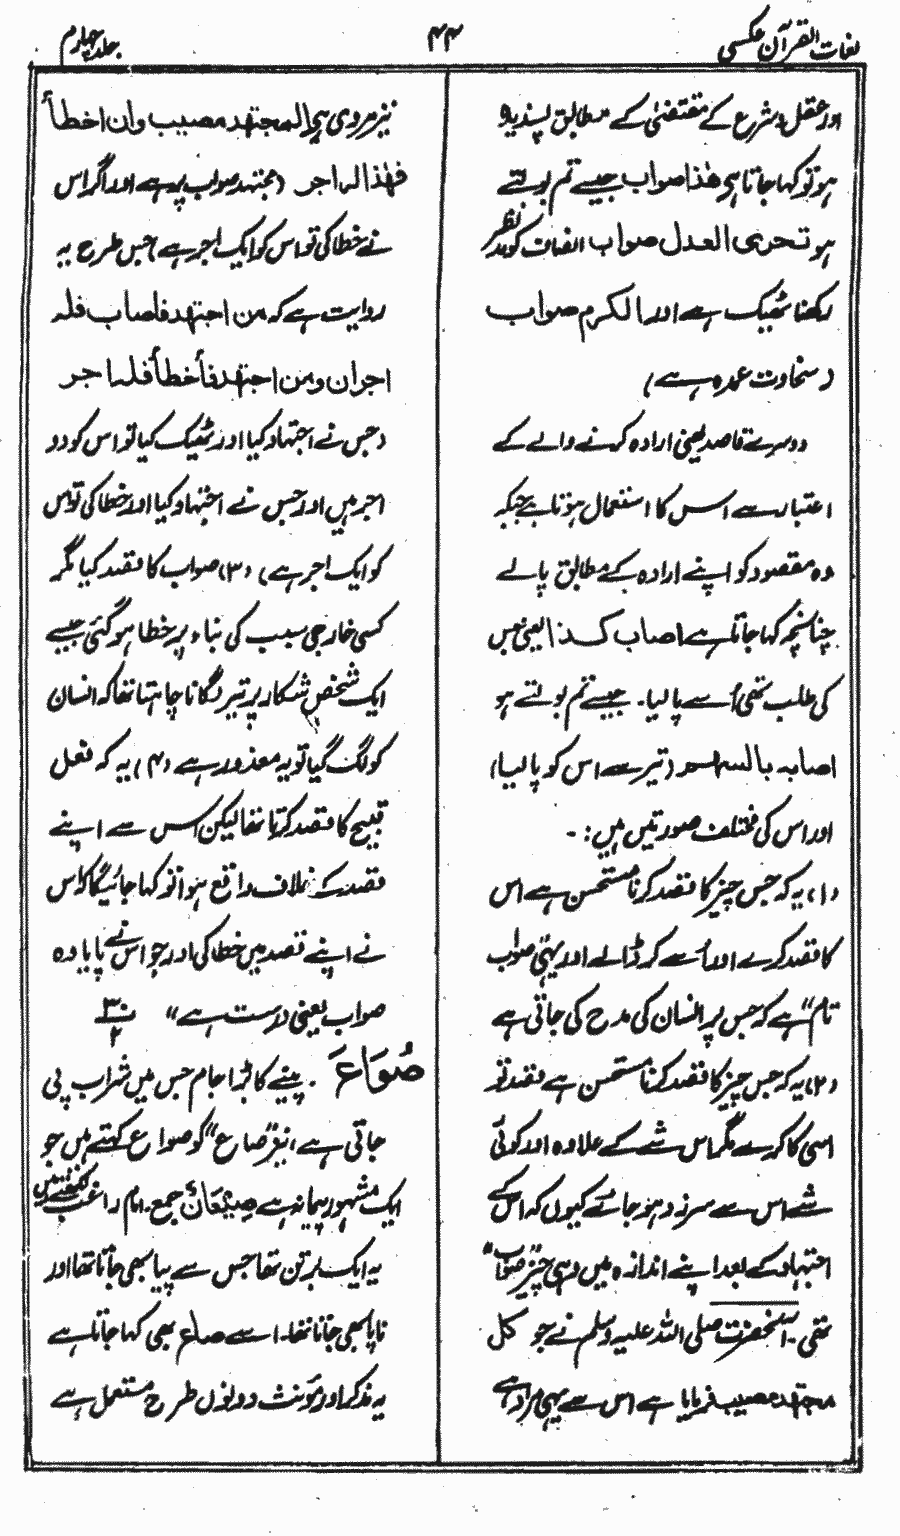 لغات القرآن عکسی
۴۴
جلد چہارم
اور عقل و شرع کے مقتضیٰ کے مطابق پسندیدہ
ہو تو کہا جاتا ہے ھٰذا صواب جیسے تم بولتے
ہو تحری العدل صواب انصاف کو مدِ نظر
رکھنا ٹھیک ہے اور الکرم صواب
(سخاوت عمدہ ہے)
دوسرے قاصد یعنی ارادہ کرنے والے کے
اعتبار سے اس کا استعمال ہوتا ہے جبکہ
وہ مقصود کو اپنے ارادہ کے مطابق پا لے
چنانچہ کہا جاتا ہے اصاب کذا یعنی جس
کی طلب تھی اُسے پا لیا۔ جیسے تم بولتے ہو
اصابہ بالسہم (تیر سے اس کو پا لیا)
اور اس کی مختلف صورتیں ہیں :-
(۱) یہ کہ جس چیز کا قصد کرنا مستحسن ہے اس
کا قصد کرے اور اُسے کر ڈالے اور یہی صواب
تام" ہے کہ جس پر انسان کی مدح کی جاتی ہے
(۲) یہ کہ جس چیز کا قصد کرنا مستحسن ہے قصد تو
اسی کا کرے مگر اس شے کے علاوہ اور کوئی
شے اس سے سرزد ہو جائے کیوں کہ اس کے
اجتہاد کے بعد اپنے اندازہ میں وہی چیز "صواب"
تھی۔ آنحضرت صلی اللہ علیہ وسلم نے جو کل
مجتہد مصیب فرمایا ہے اس سے یہی مراد ہے
نیز مروی ہے المجتھد مصیب وان اخطأ
فھٰذا لہ اجر (مجتہد صواب پر ہے اور اگر اس
نے خطا کی تو اس کو ایک اجر ہے) جس طرح یہ
روایت ہے کہ من اجتھد فاصاب فلہ
اجران ومن اجتھد فأخطأ فلہ اجر
(جس نے اجتہاد کیا اور ٹھیک کیا تو اس کو دو
اجر ہیں اور جس نے اجتہاد کیا اور خطا کی تو اس
کو ایک اجر ہے) (۳) صواب کا قصد کیا مگر
کسی خارجی سبب کی بناء پر خطا ہو گئی جیسے
ایک شخص شکار پر تیر لگانا چاہتا تھا کہ انسان
کو لگ گیا تو یہ معذور ہے (۴) یہ کہ فعل
قبیح کا قصد کرتا تھا لیکن اس سے اپنے
قصد کے خلاف واقع ہوا تو کہا جائیگا کہ اس
نے اپنے قصد میں خطا کی اور جو اس نے پایا وہ
صواب یعنی درست ہے" ۳۰/۲
صُوَاعَ ۔ پینے کا بڑا جام جس میں شراب پی
جاتی ہے، نیز "صاع" کو صواع کہتے ہیں جو
ایک مشہور پیمانہ ہے صِیْعَانٌ جمع۔ امام راغب لکھتے ہیں
یہ ایک برتن تھا جس سے پیا بھی جاتا تھا اور
ناپا بھی جاتا تھا۔ اسے صاع بھی کہا جاتا ہے
یہ مذکر اور مؤنث دونوں طرح مستعمل ہے